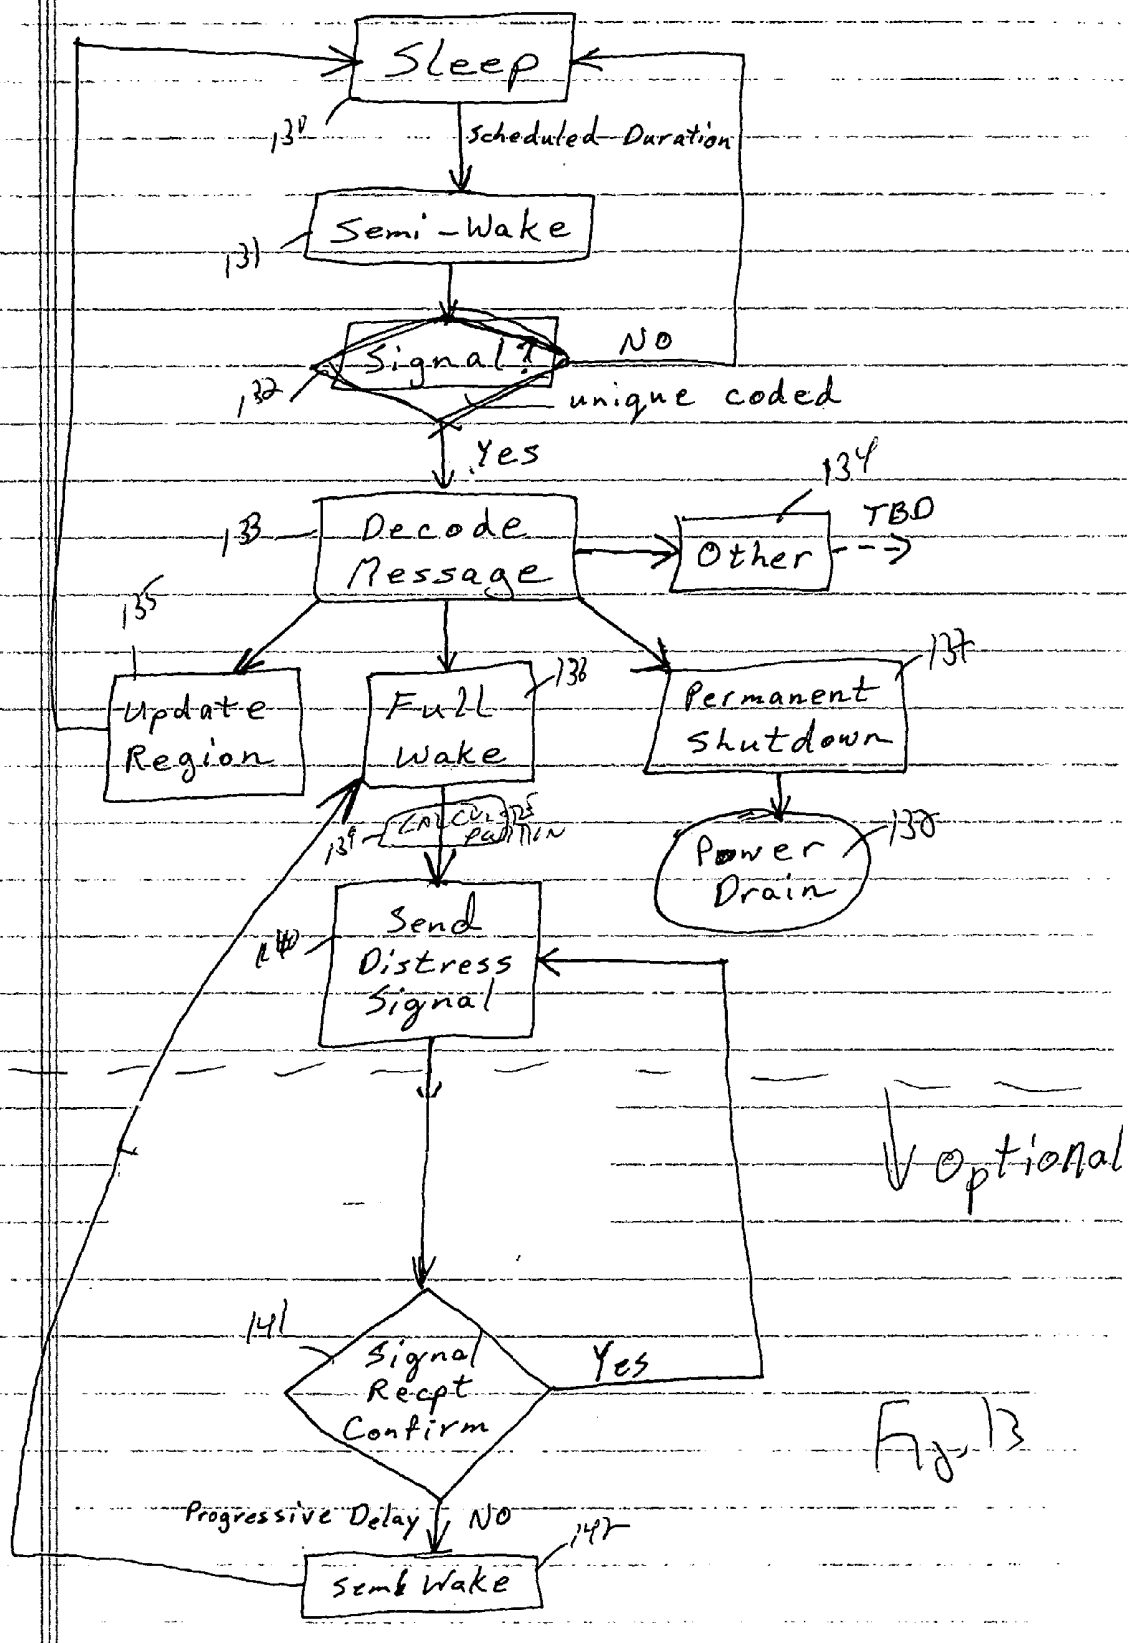 Sleep
130
Scheduled Duration
Semi-Wake
131
Signal?
NO
132
unique coded
Yes
134
133
Decode
Message
Other
TBD
135
136
137
Update
Region
Full
Wake
Permanent
Shutdown
139
138
Power
Drain
140
Send
Distress
Signal
Optional
141
Signal
Recpt
Confirm
Yes
Fig. 13
Progressive Delay
NO
142
Semi Wake